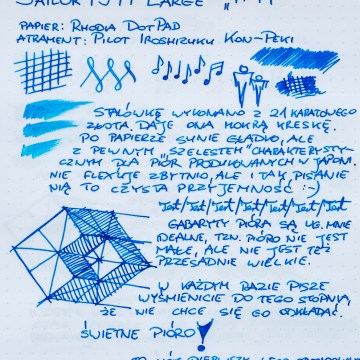 SAILOR 1911 LARGE
PAPIER: RHODIA DOTPAD
ATRAMENT: PILOT IROSHIZUKU KON-PEKI
STALÓWKĘ WYKONANO Z 21 KARATOWEGO
ZŁOTA. DAJE ONA MOKRĄ KRESKĘ.
PO PAPIERZE SUNIE GŁADKO, ALE
Z PEWNYM „SZELESTEM” CHARAKTERYSTY-
CZNYM DLA PIÓR PRODUKOWANYCH W JAPONII.
NIE FLEXUJE ZBYTNIO, ALE I TAK PISANIE
NIĄ TO CZYSTA PRZYJEMNOŚĆ :-)
Text/Text/Text/Text/Text/Text/Text
GABARYTY PIÓRA SĄ WG. MNIE
IDEALNE, TZN. PIÓRO NIE JEST
MAŁE, ALE NIE JEST TEŻ
PRZESADNIE WIELKIE.
W KAŻDYM RAZIE PISZE
WYŚMIENICIE DO TEGO STOPNIA,
ŻE NIE CHCE SIĘ GO ODKŁADAĆ.
ŚWIETNE PIÓRO!